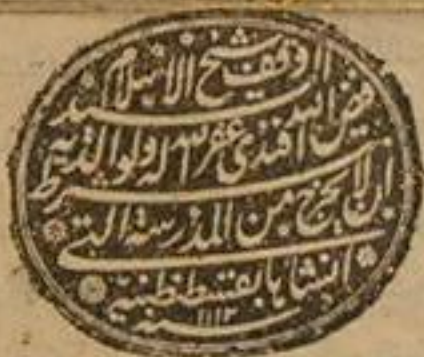 وقف شيخ الاسلام السيد
فيض الله افندى غفر الله له ولوالديه
بشرط ان لا يخرج من المدرسة التى
انشاها بقسطنطنية
سنه ١١١٢